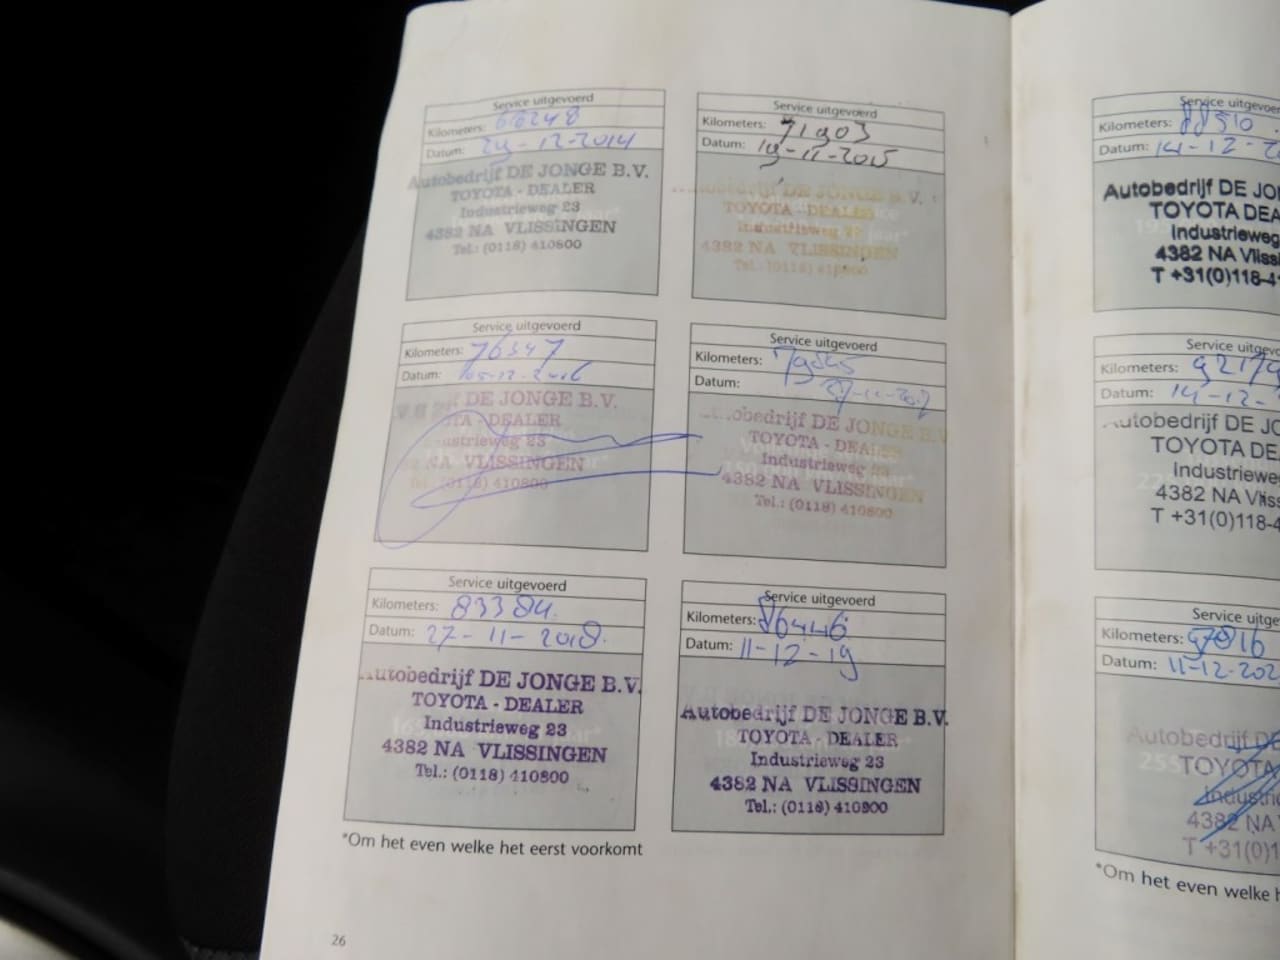 Service uitgevoerd
Kilometers: 66248
Datum: 29-12-2014
Autobedrijf DE JONGE B.V.
TOYOTA - DEALER
Industrieweg 23
4382 NA VLISSINGEN
Tel.: (0118) 410800
Service uitgevoerd
Kilometers: 71903
Datum: 19-11-2015
Autobedrijf DE JONGE B.V.
TOYOTA - DEALER
Industrieweg 23
4382 NA VLISSINGEN
Tel.: (0118) 410800
Service uitgevoerd
Kilometers: 76347
Datum: 05-12-2016
DE JONGE B.V.
TA - DEALER
ustrieweg 23
NA VLISSINGEN
(0118) 410800
Service uitgevoerd
Kilometers:
Datum: 27-11-2017
obedrijf DE JONGE B.V.
TOYOTA - DEALER
Industrieweg 23
4382 NA VLISSINGEN
Tel.: (0118) 410800
Service uitgevoerd
Kilometers: 83384
Datum: 27-11-2018
Autobedrijf DE JONGE B.V.
TOYOTA - DEALER
Industrieweg 23
4382 NA VLISSINGEN
Tel.: (0118) 410800
Service uitgevoerd
Kilometers: 86446
Datum: 11-12-19
Autobedrijf DE JONGE B.V.
TOYOTA - DEALER
Industrieweg 23
4382 NA VLISSINGEN
Tel.: (0118) 410800
*Om het even welke het eerst voorkomt
26
Service uitgevoe
Kilometers: 88510
Datum: 14-12-20
Autobedrijf DE JO
TOYOTA DEA
Industrieweg
4382 NA Vliss
T +31(0)118-4
Service uitgevo
Kilometers: 9217
Datum: 14-12-
utobedrijf DE JO
TOYOTA DE
Industriewe
4382 NA Vliss
T +31(0)118-4
Service uitge
Kilometers: 97816
Datum: 11-12-202
Autobedrijf DE
TOYOTA
Industri
4382 NA
T +31(0)1
*Om het even welke h